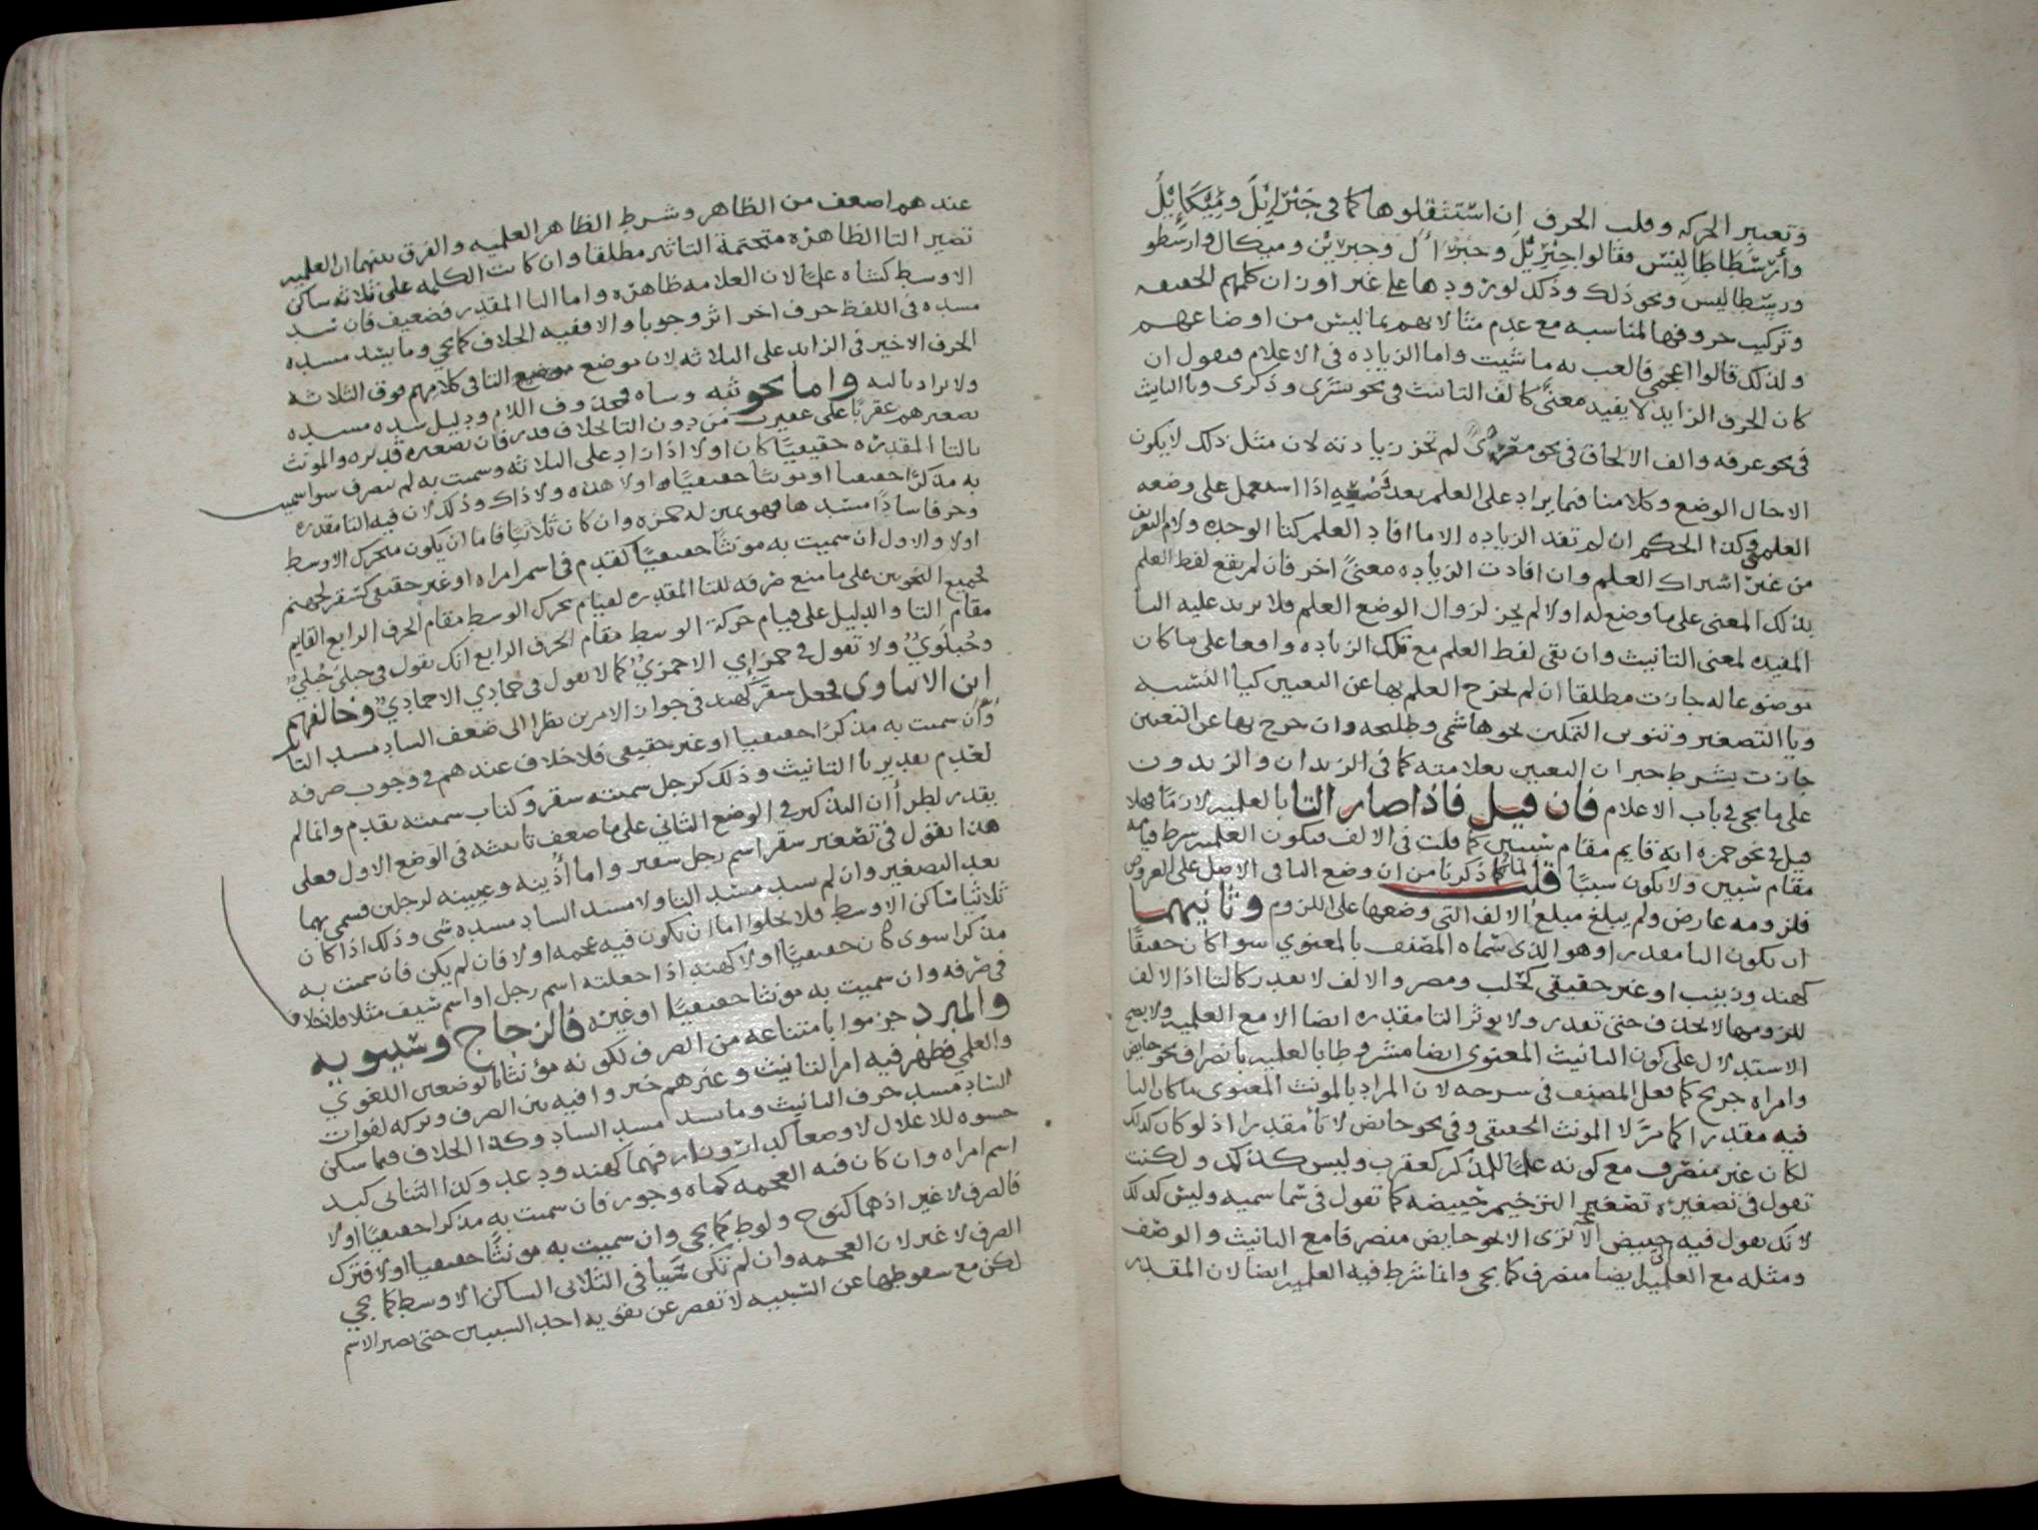 وتغيير الحركه وقلب الحرف إن استثقلوها كما في جَبْرَائِيلَ ومِيكَائِيلَ
وأرسطاطاليس فقالوا جِبْرِيْل وجبرأل وجبرين وميكال وارسطو
ورسطاليس ونحو ذلك وذلك لورودها على غير اوزان كلمهم الخفيفه
وتركيب حروفها المناسبه مع عدم مبالاتهم بما ليس من اوضاعهم
ولذلك قالوا اعجمي فالعب به ما شيت واما الزياده في الاعلام فنقول ان
كان الحرف الزايد لا يفيد معنًى كالف التانيث في نحو بشرى وذكرى وتا التانيث
في نحو عرفه والف الالحاق في نحو معزًى لم تجز زيادته لان مثل ذلك لا يكون
الا حال الوضع وكلامنا فيما يزاد على العلم بعد وضعه اذا استعمل على وضعه
العلمي وكذا الحكم ان لم تفد الزياده الا ما افاد العلم كتا الوحده ولام التعريف
من غير اشتراك العلم وان افادت الزياده معنًى اخر فان لم يقع لفظ العلم
بذلك المعنى على ما وضع له اولا لم يجز لزوال الوضع العلمي فلا تزيد عليه التا
المفيده لمعنى التانيث وان بقي لفظ العلم مع تلك الزياده واقعا على ما كان
موضوعا له جازت مطلقا ان لم يخرج العلم بها عن التعيين كيا النسبه
ويا التصغير وتنوين التمكين نحو هاشمي وطليحه وان خرج بها عن التعيين
جازت بشرط جبران التعيين بعلامته كما في الزيدان والزيدون
على ما يجي في باب الاعلام فان قيل فاذا صار التا بالعلميه لازما فهلا
قيل في نحو حمزه انه قايم مقام شيين كما قلت في الالف فتكون العلميه شرط قيامه
مقام شيين ولا يكون سببًا قلت لما ذكرنا من ان وضع التا في الاصل على العروض
فلزومه عارض ولم يبلغ مبلغ الالف التي وضعها على اللزوم وثانيهما
ان يكون التا مقدرا وهو الذي سماه المصنف بالمعنوي سوا كان حقيقيًا
كهند وزينب او غير حقيقي كحلب ومصر والالف لا تقدر كالتا اذ الالف
للزومها لا تحذف حتى تقدر ولا يوثر التا مقدره ايضا الا مع العلميه ولا يصح
الاستدلال على كون التانيث المعنوي ايضا مشروطا بالعلميه بانصراف نحو حايض
وامراه جريح كما فعل المصنف في شرحه لان المراد بالمونث المعنوي ما كان التا
فيه مقدرا كما مرّ لا المونث الحقيقي وفي نحو حايض لا تأ مقدرا اذ لو كان كذلك
لكان غير منصرف مع كونه علمًا للمذكر كعقرب وليس كذلك ولكنت
تقول في تصغيره تصغير الترخيم حييضه كما تقول في سما سميه وليس كذلك
لانك تقول فيه حييض الا ترى الى نحو حايض منصرفا مع التانيث والوصف
ومثله مع العلميه ايضا منصرف كما يجي وانما شرط فيه العلميه ايضا لان المقدر
عندهم اضعف من الظاهر وشرط الظاهر العلميه والفرق بينهما ان العلميه
تصير التا الظاهره متحتمة التاثير مطلقا وان كانت الكلمه على ثلاثه ساكن
الاوسط كشاه علمًا لان العلامه ظاهره واما التا المقدر فضعيف فان سد
مسده في اللفظ حرف اخر اثر وجوبا والا ففيه الخلاف كما يجي وما يسد مسده
الحرف الاخير في الزايد على الثلاثه لان موضع التا في كلامهم فوق الثلاثه
ولا يراد باليه واما نحو ثبه وشاه فمحذوف اللام ودليل سده مسده
تصغيرهم عقربًا على عقيرب من دون التا بخلاف قدر فان تصغيره قديره والمونث
بالتا المقدره حقيقيًا كان اولا اذا زاد على الثلاثه وسميت به لم ينصرف سوا سميت
به مذكرًا حقيقيا او مونثا حقيقيًا او لا هذه ولا ذاك وذلك لان فيه التا مقدره
وحرفا سادًا مسدها فهو بمنزله حمزه وان كان ثلاثيا فاما ان يكون متحرك الاوسط
اولا والاول ان سميت به مونثًا حقيقيًا كقدم في اسم امراه او غير حقيقي كسقر لجهنم
فجميع النحويين على ما منع صرفه للتا المقدره لقيام تحرك الوسط مقام الحرف الرابع القايم
مقام التا والدليل على قيام حركة الوسط مقام الحرف الرابع انك تقول في حبلى حُبليٌّ
وحُبلَويٌّ ولا تقول في جمزى الا جمزيٌّ كما لا تقول في جمادي الا جماديٌّ وخالفهم
ابن الانباري فجعل سقر كهند في جواز الامرين نظرا الى ضعف الساد مسد التا
وان سميت به مذكرًا حقيقيا او غير حقيقي فلا خلاف عندهم في وجوب صرفه
لعدم تقدير تا التانيث وذلك كرجل سميته سقر وكتاب سميته بقدم وانما لم
يقدر لطرأان التذكير في الوضع الثاني على ما ضعف تانيثه في الوضع الاول فعلى
هذا تقول في تصغير سقر اسم رجل سقير واما أذينه وعيينه لرجلين فسمي بهما
بعد التصغير وان لم يسد مسد التا ولا مسد الساد مسده شي وذلك اذا كان
ثلاثيًا ساكن الاوسط فلا يخلوا اما ان تكون فيه عجمه اولا فان لم يكن فان سميت به
مذكرا سوى كان حقيقيًا اولا كهند اذا جعلته اسم رجل او اسم سيف مثلا فلا خلاف
في صرفه وان سميت به مونثا حقيقيًا او غيره فالزجاج وسيبويه
والمبرد جزموا بامتناعه من الصرف لكونه مؤنثا بالوضعين اللغوي
والعلمي فظهر فيه امر التانيث وغيرهم خيروا فيه بين الصرف وتركه لفوات
الساد مسد حرف التانيث وما يسد مسد الساد وكذا الخلاف فيما سكن
حشوه للاعلال لا وضعا كدار ونار فهما كهند ودعد وكذا الثنائي كيد
اسم امراه وان كان فيه العجمه كماه وجور فان سميت به مذكرا حقيقيًا اولا
فالصرف لا غير اذ هما كنوح ولوط كما يجي وان سميت به مونثًا حقيقيا اولا فترك
الصرف لا غير لان العجمه وان لم تكن سببًا في الثلاثي الساكن الاوسط كما يجي
لكن مع سقوطها عن السببيه لا تقصر عن تقويه احد السببين حتى يصير الاسم